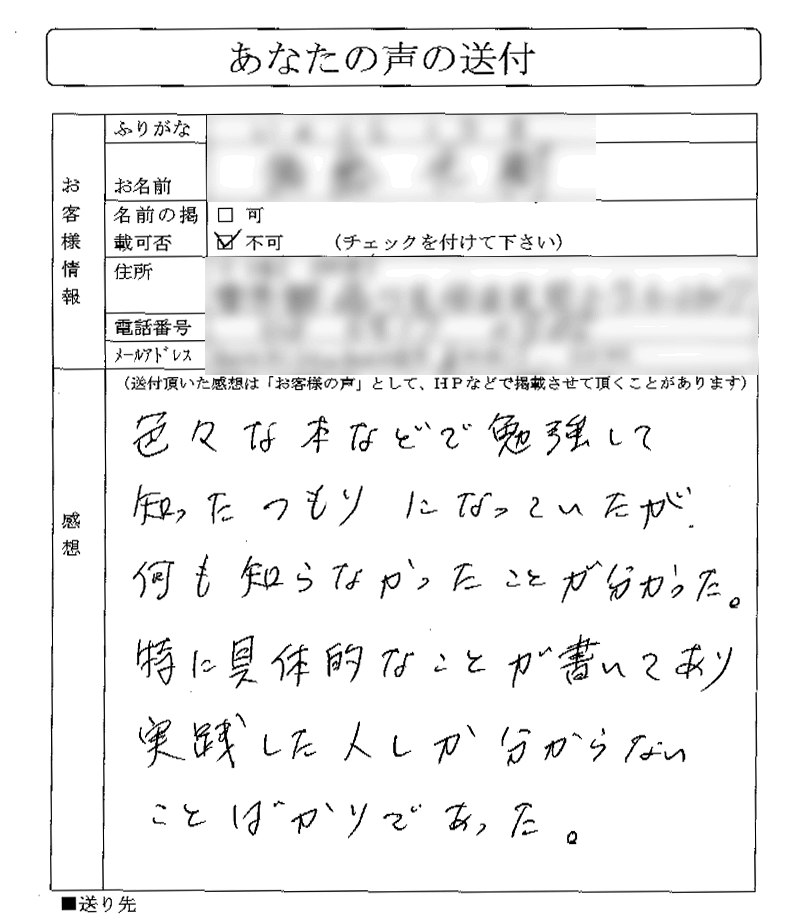 あなたの声の送付
お客様情報
ふりがな
お名前
名前の掲載可否
□ 可
☑ 不可 (チェックを付けて下さい)
住所
電話番号
メールアドレス
感想
(送付頂いた感想は「お客様の声」として、HPなどで掲載させて頂くことがあります)
色々な本などで勉強して
知ったつもりになっていたが、
何も知らなかったことが分かった。
特に具体的なことが書いてあり
実践した人しか分からない
ことばかりであった。
■送り先